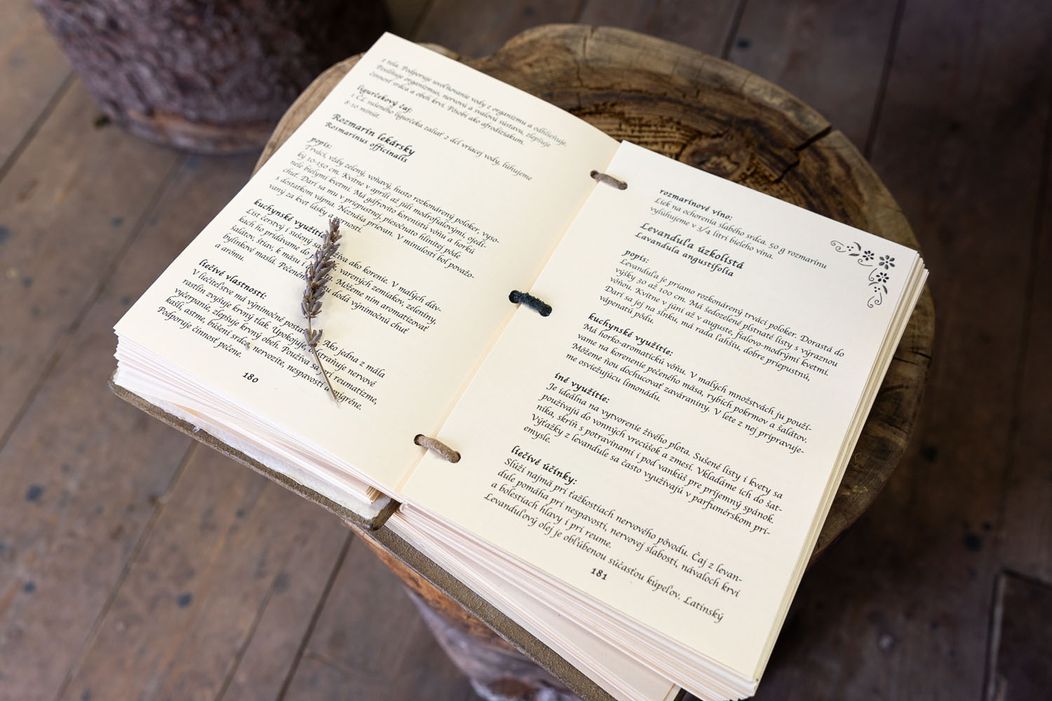 z tela. Podporuje vylučovanie vody z organizmu a odhlieňuje.
Posilňuje organizmus, nervovú a svalovú sústavu, zlepšuje
činnosť srdca a obeh krvi. Pôsobí ako afrodiziakum.
ligurčekový čaj:
1 ČL sušeného ligurčeka zaliať 2 dcl vriacej vody, lúhujeme
8-10 minút.
Rozmarín lekársky
Rosmarinus officinalis
popis:
Trváci, vždy zelený, voňavý, husto rozkonárený poloker, vyso-
ký 10-150 cm. Kvitne v apríli až júli modrofialovými, ojedi-
nele bielymi kvetmi. Má gáfrovito korenistú vôňu a horkú
chuť. Darí sa mu v priepustnej, piesočnato hlinitej pôde
s dostatkom vápna. Neznáša prievan. V minulosti bol považo-
vaný za kvet lásky
kuchynské využitie:
List čerstvý i sušený ako korenie. V malých dáv-
kach ho pridávame do varených zemiakov, zeleniny,
šalátov, Môžeme ním aromatizovať
bylinkové maslá. dodá výnimočnú chuť
a arómu.
liečivé vlastnosti:
V liečiteľstve má výnimočné Ako jedna z mála
rastlín zvyšuje krvný tlak. nervové
vyčerpanie, zlepšuje krvný obeh. Používa sa pri reumatizme,
kašli, astme, búšení srdca, nervozite, nespavosti migréne.
Podporuje činnosť pečene.
180
rozmarínové víno:
Liek na ochorenia slabého srdca. 50 g rozmarínu
vylúhujeme v 3/4 litri bieleho vína.
Levanduľa úzkolistá
Lavandula angustifolia
popis:
Levanduľa je priamo rozkonárený trváci poloker. Dorastá do
výšky 30 až 100 cm. Má šedozelené plstnaté listy s výraznou
vôňou. Kvitne v júni až v auguste, fialovo-modrými kvetmi.
Darí sa jej na slnku, má rada ľahšiu, dobre priepustnú,
vápenatú pôdu.
kuchynské využitie:
Má horko-aromatickú vôňu. V malých množstvách ju použí-
vame na korenenie pečeného mäsa, rybích pokrmov a šalátov.
Môžeme ňou dochucovať zaváraniny. V lete z nej pripravuje-
me osviežujúcu limonádu.
iné využitie:
Je ideálna na vytvorenie živého plota. Sušené listy i kvety sa
používajú do vonných vrecúšok a zmesí. Vkladáme ich do šat-
níka, skríň s potravinami i pod vankúš pre príjemný spánok.
Výťažky z levandule sa často využívajú v parfumérskom pri-
emysle.
liečivé účinky:
Slúži najmä pri ťažkostiach nervového pôvodu. Čaj z levan-
dule pomáha pri nespavosti, nervovej slabosti, návaloch krvi
a bolestiach hlavy i pri reume.
Levanduľový olej je obľúbenou súčasťou kúpeľov. Latinský
181